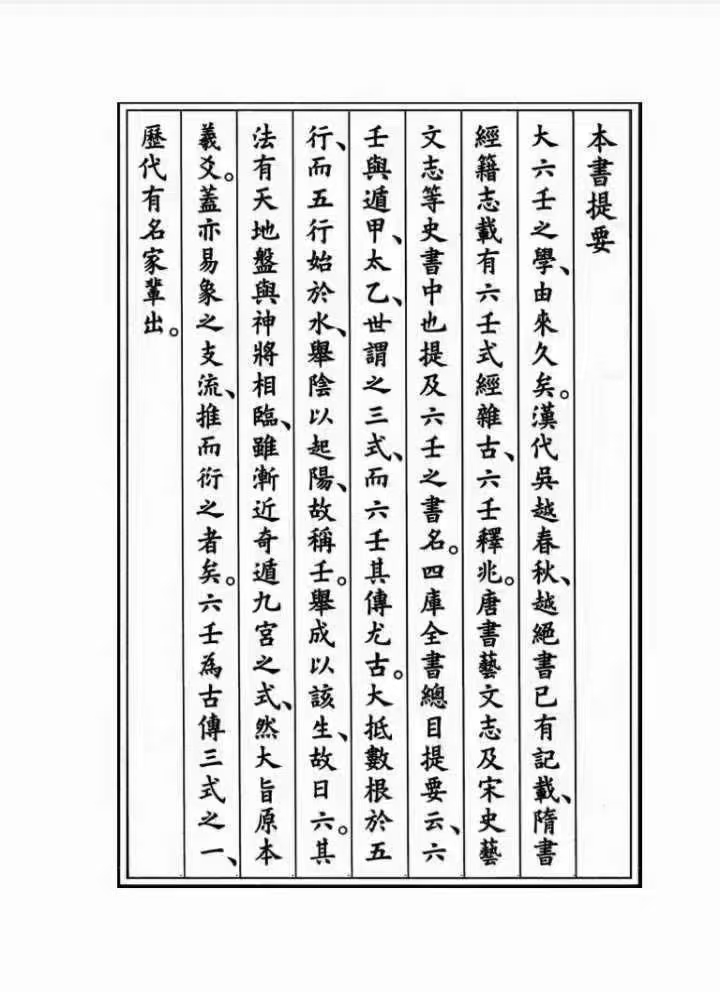 本書提要
大六壬之學、由來久矣。漢代吳越春秋、越絕書已有記載、隋書
經籍志載有六壬式經雜古、六壬釋兆。唐書藝文志及宋史藝
文志等史書中也提及六壬之書名。四庫全書總目提要云、六
壬與遁甲、太乙、世謂之三式、而六壬其傳尤古。大抵數根於五
行、而五行始於水、舉陰以起陽、故稱壬。舉成以該生、故曰六。其
法有天地盤與神將相臨、雖漸近奇遁九宮之式、然大旨原本
羲爻。蓋亦易象之支流、推而衍之者矣。六壬為古傳三式之一、
歷代有名家輩出。